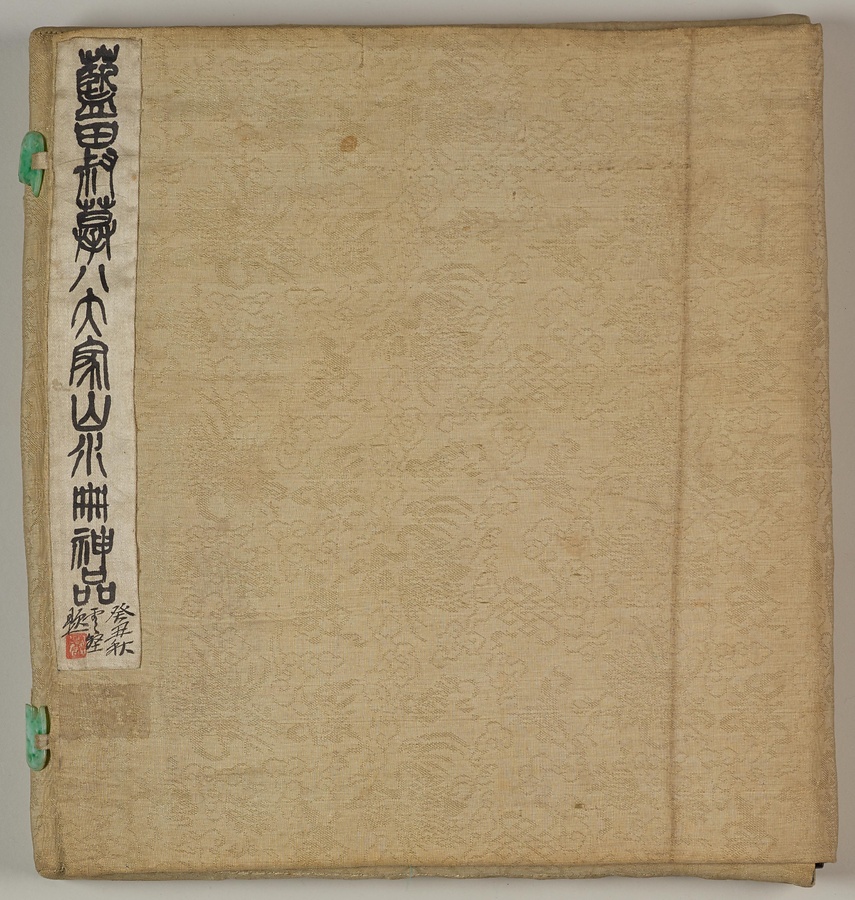 藍田叔摹八大家山水冊神品
癸丑秋
雲
題